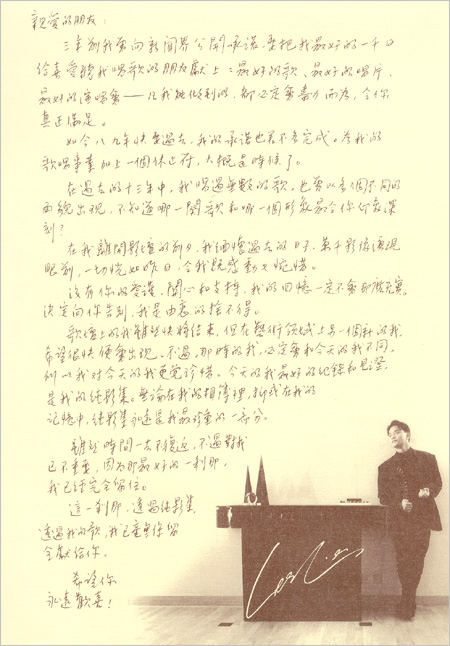 親愛的朋友：
三年前我曾向新聞界公開承諾，要把我最好的一千日
給喜愛聽我唱歌的朋友獻上：最好的歌、最好的唱片、
最好的演唱會——凡我能做到的，都必定會盡力而為，令你
真正滿足。
如今八九年快要過去，我的承諾也差不多完成。為我的
歌唱事業加上一個休止符，大概是時候了。
在過去的十三年中，我唱過無數的歌，也曾以多個不同的
面貌出現，不知道哪一闋歌和哪一個形象最令你印象深
刻？
在我離開歌壇的前夕，我緬懷過去的日子，萬千影像湧現
眼前，一切恍如昨日，令我既感動又惋惜。
沒有你的愛護、關心和支持，我的回憶一定不會那麼充實。
決定向你告別，我是由衷的捨不得。
歌壇上的我雖然快將結束，但在藝術領域上另一個新的我，
希望很快便會出現。不過，那時的我，必定會和今天的我不同，
所以我對今天的我更覺珍惜。今天的我最好的紀錄和見證，
是我的結影集。無論在我的相簿裡，抑或在我的
記憶中，結影集永遠是我最珍重的一部分。
雖然時間一去不復返，不過對我
已不重要，因為那最好的一剎那，
我已經完全留住。
這一剎那，透過結影集，
透過我的歌，我已毫無保留
全獻給你。
希望你
永遠歡喜！
Leslie